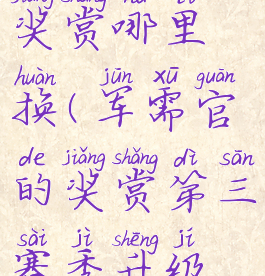 jiǎng shǎng nǎ lǐ
奖赏哪里
huàn jūn xū guān
换(军需官
de jiǎng shǎng dì sān
的奖赏第三
sài jì shēng jí
赛季升级